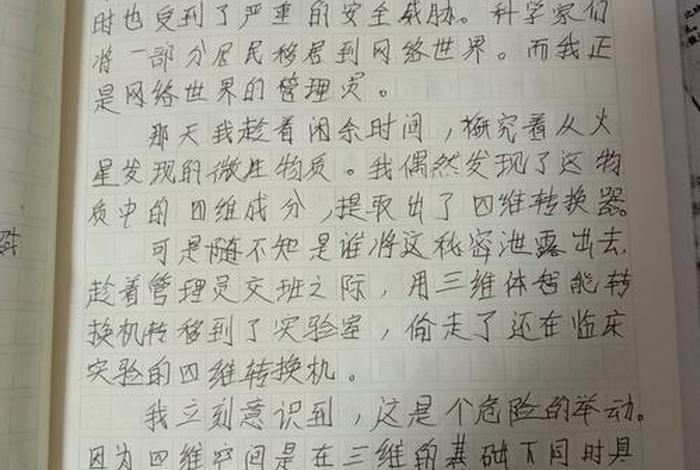 时也受到了严重的安全威胁。科学家们
将一部分居民移居到网络世界。而我正
是网络世界的管理员。
那天我趁着闲余时间，研究着从火
星发现的微生物质。我偶然发现了这物
质中的四维成分，提取出了四维转换器。
可是随不知是谁将这秘密泄露出去,
趁着管理员交班之际，用三维体智能转
换机转移到了实验室，偷走了还在临床
实验的四维转换机。
我立刻意识到，这是个危险的举动。
因为四维空间是在三维的基础下同时具